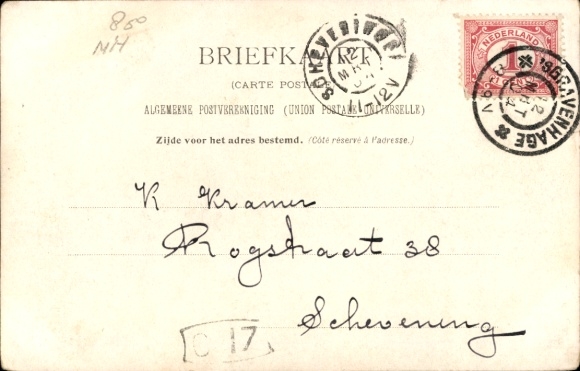 850
MH
BRIEFKAART
(CARTE POSTALE)
ALGEMEENE POSTVEREENIGING (UNION POSTALE UNIVERSELLE)
Zijde voor het adres bestemd. (Côté réservé à l'adresse.)
NEDERLAND
1
SCHEVENINGEN
12 MRT
11-12V
'SGRAVENHAGE
12 MRT
K Kramer
Rogstraat 38
Schevening
C 17